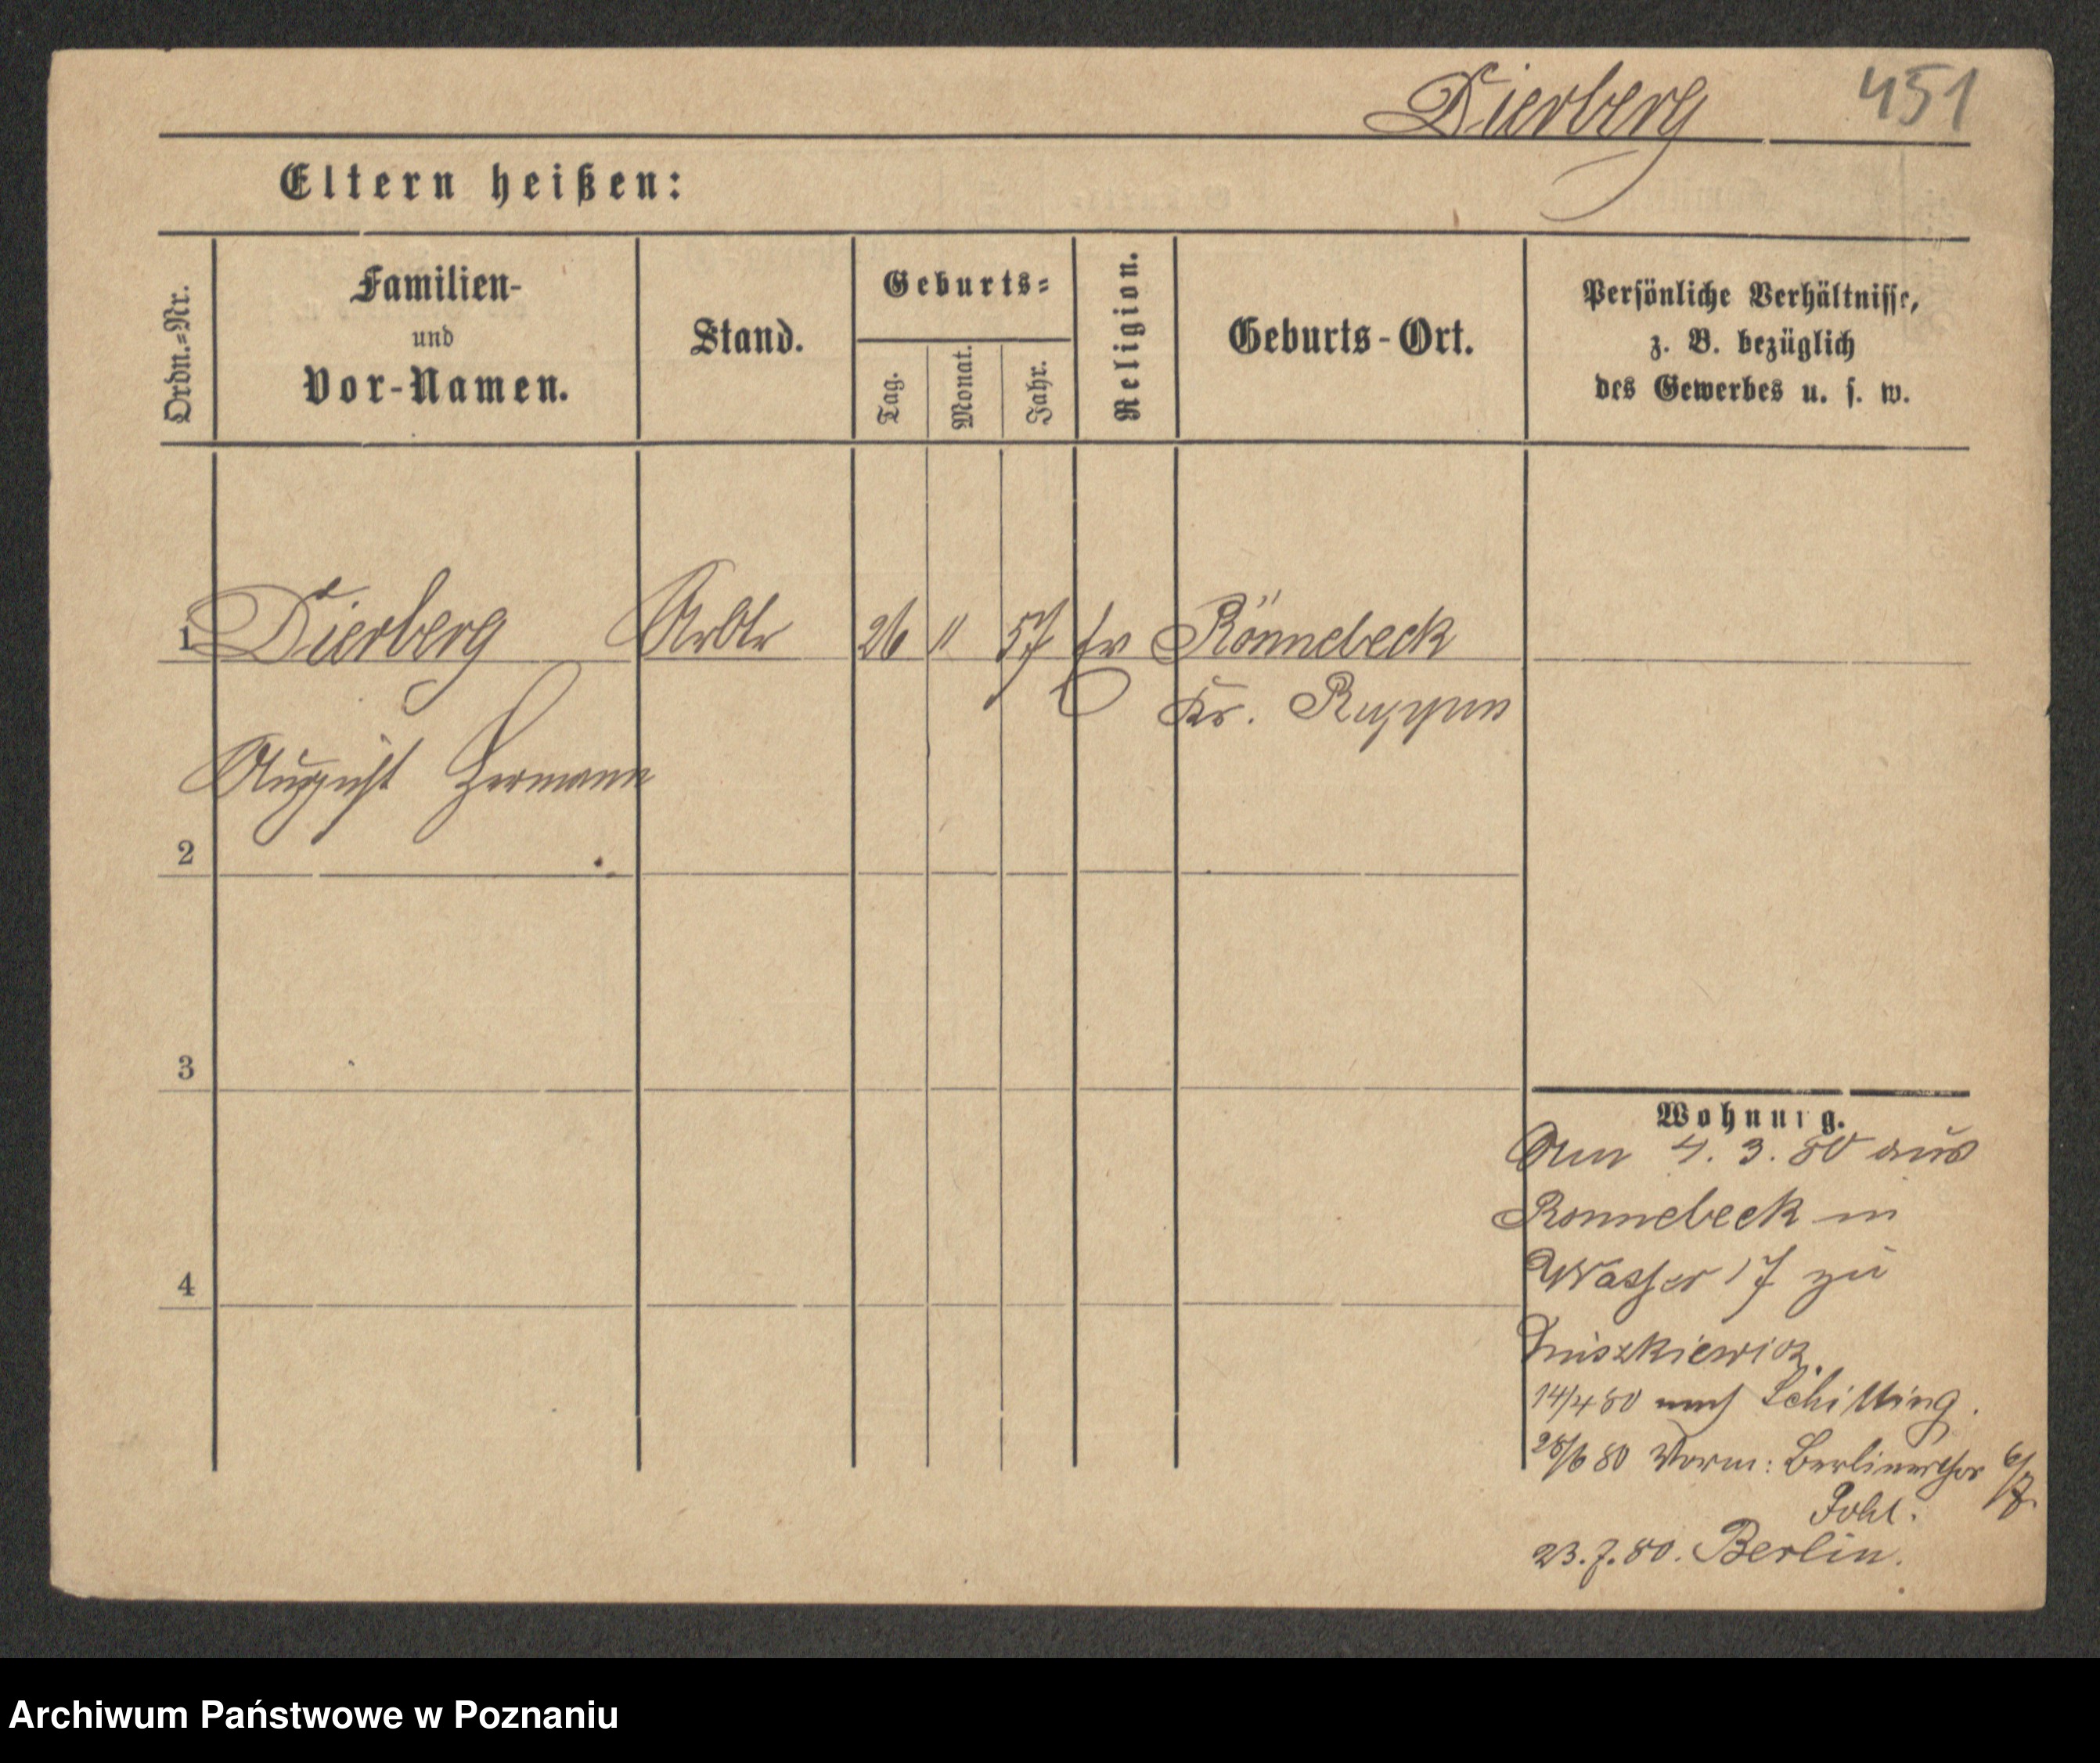 Dierberg 451
Eltern heißen:
Ordn.=Nr.
Familien-
und
Vor-Namen.
Stand.
Geburts=
Tag.
Monat.
Jahr.
Religion.
Geburts-Ort.
Persönliche Verhältnisse,
z. B. bezüglich
des Gewerbes u. s. w.
1 Dierberg Arbtr 26 11 57 ev Rönnebeck
Kr. Ruppin
August Hermann
2
3
4
Wohnung.
Am 4. 3. 80 aus
Ronnebeck in
Wasser 17 zu
14/4 80 nach Schilling.
28/6 80 Worm: Berlinerthor 6/7.
Pohl.
23.7.80. Berlin.
Archiwum Państwowe w Poznaniu